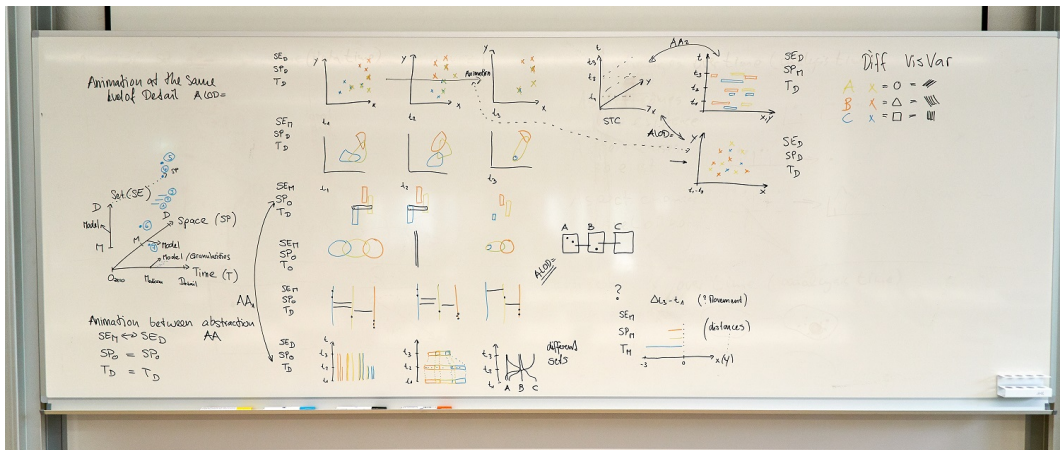 Animation at the same
level of Detail ALOD=
Set (SE)
D
Model
M
D
Space (SP)
M
Model
Model / Granularities
Time (T)
Zero
Medium
Detail
SP
Animation between abstraction
AA
SEM ↔ SED
SP0 = SP0
TD = TD
AA1
SED
SPD
TD
y
x
t1
y
x
t2
Animation
y
x
t3
SEM
SPD
TD
t1
t2
t3
SEM
SP0
TD
SEM
SP0
T0
SEM
SP0
TD
SED
SP0
TD
t3
t2
t1
t3
t2
t1
t3
t2
t1
A B C
different
sets
ALOD=
A B C
t
t3
t2
t1
y
x
STC
AA2
t
t3
t2
t1
x,y
SED
SPM
TD
ALOD=
y
x
t1-t3
SED
SPD
TD
?
Δt3-t1 (? Movement)
SEM
SPM
TM
(distances)
-3
0
x(y)
Diff VisVar
A x = O =
B x = △ =
C x = □ =